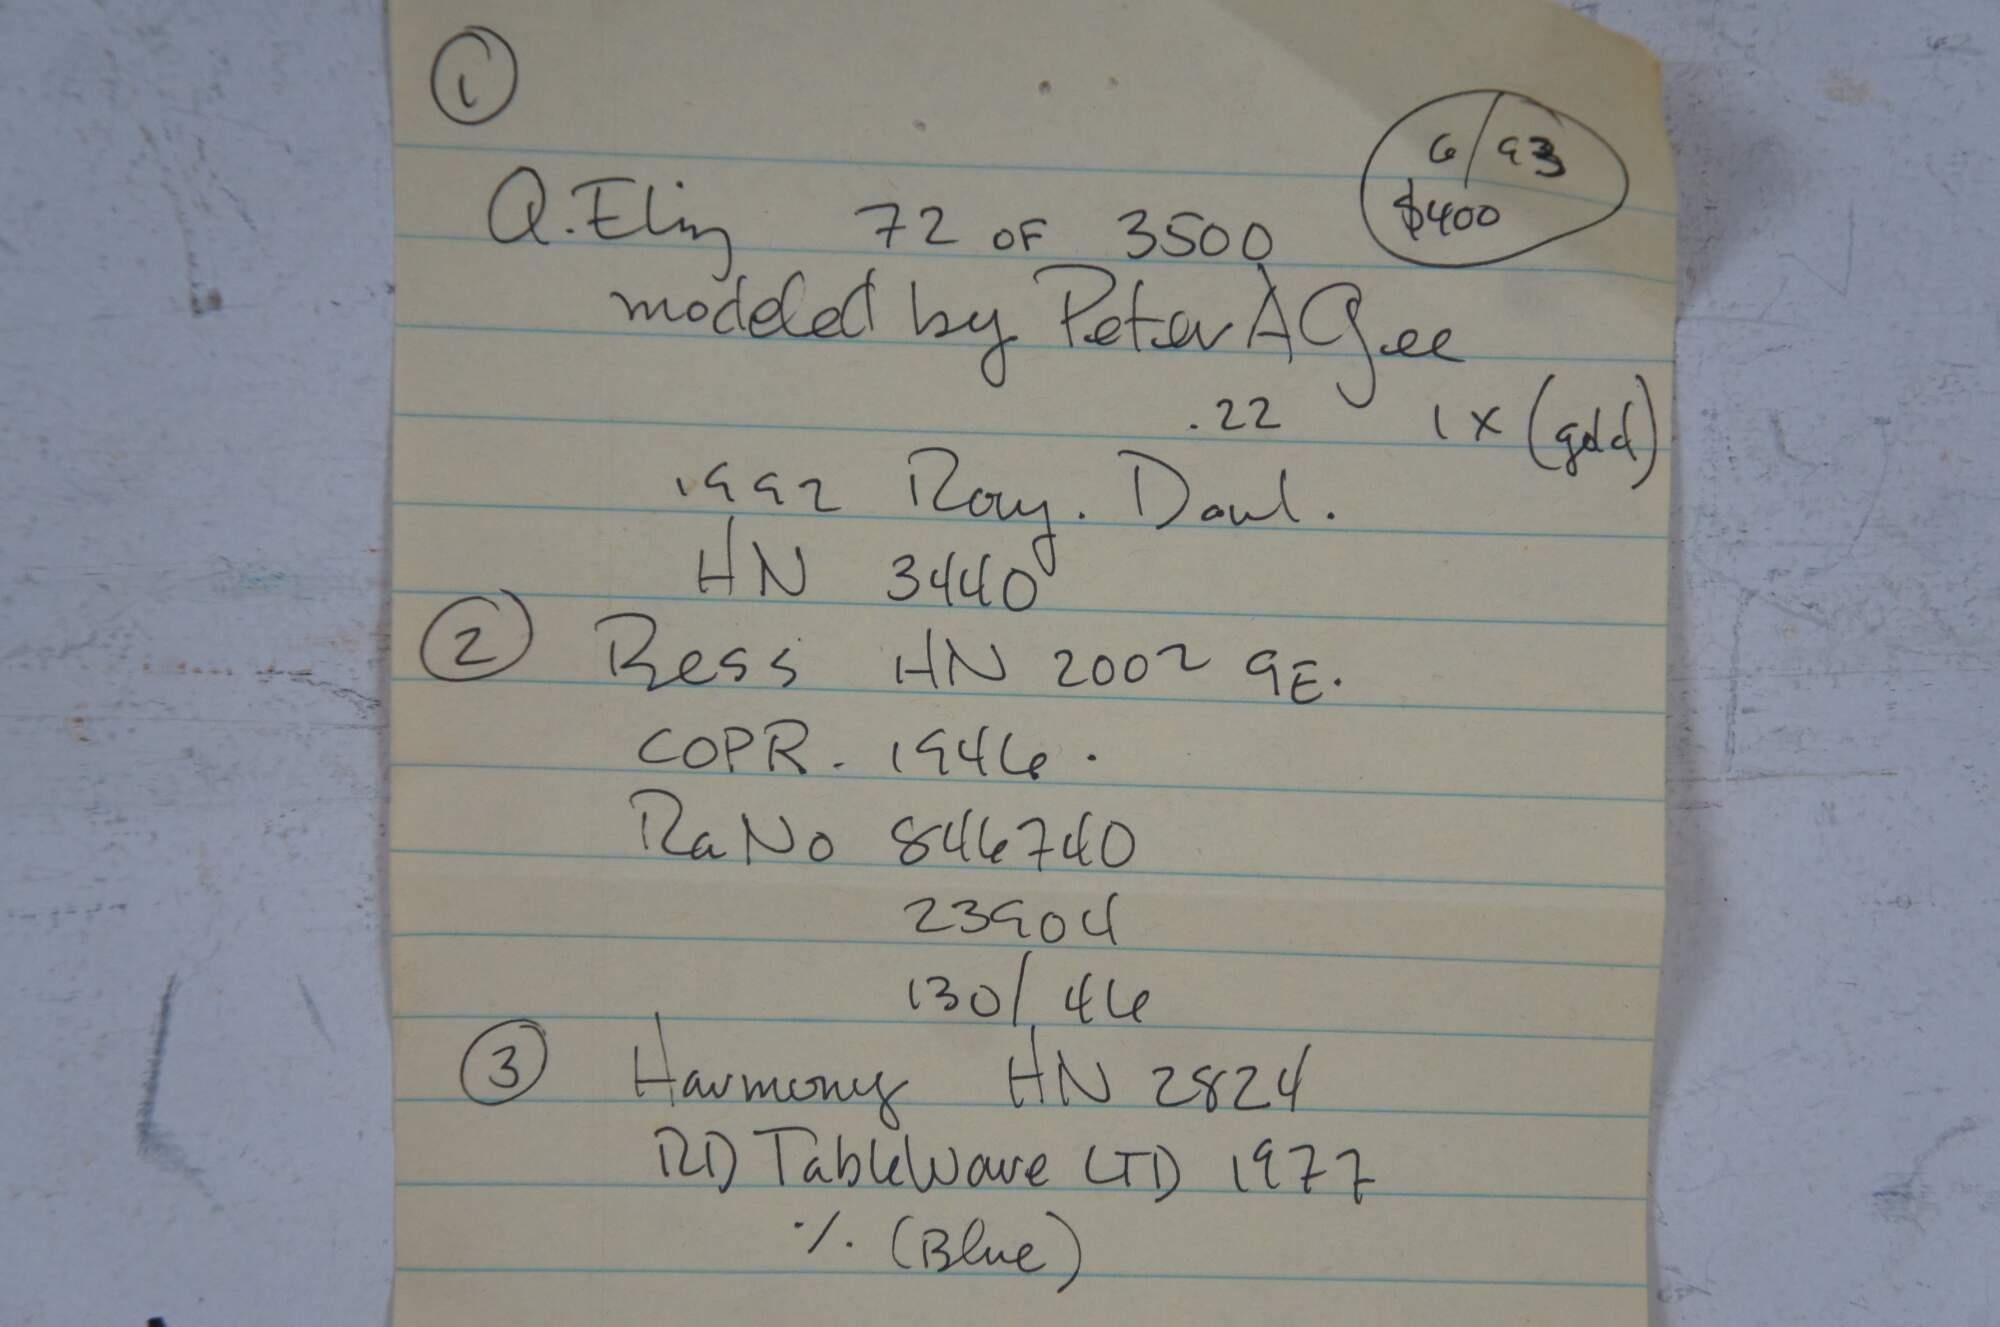 1
6/93
$400
Q. Eliz 72 OF 3500
modeled by Peter A Gee
.22 1x (gold)
1992 Roy. Doul.
HN 3440
2 Bess HN 2002 9E.
COPR. 1946.
Ra No 846740
23904
130/46
3 Harmony HN 2824
RD TableWare LTD 1977
·/. (Blue)